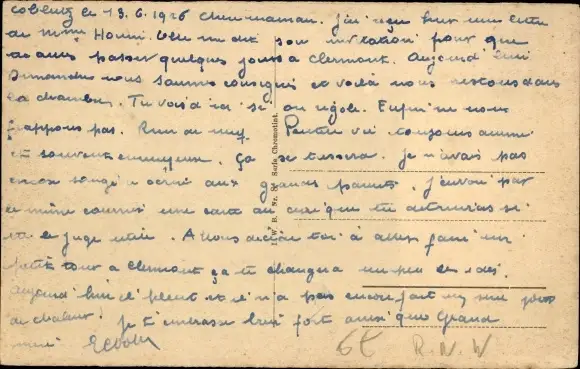 Coblentz le 13.6.1926 Chère maman. J'ai reçu hier une lettre
de mme Elle me dit son invitation pour que
tu ailles passer quelques jours à Clermont. Aujourd'hui
Dimanche nous sommes consignés et voilà nous restons dans
la chambre. Tu vois d'ici si on rigole. Enfin ne nous
frappons pas. Rien de neuf. Petite vie toujours
et souvent ennuyeux. Ça se tassera. Je n'avais pas
encore songé à écrire aux grands parents. J'envoie par
le même courrier une carte au que tu si
le juge utile. Allons décide toi à aller faire un
petit tour à Clermont ça te changera un peu les idées.
Aujourd'hui il pleut et il n'a pas encore fait un seul jour
de chaleur. Je t'embrasse bien fort ainsi que Grand
W. B. Nr. 8 Serie Chromotint.
6t R.N.W